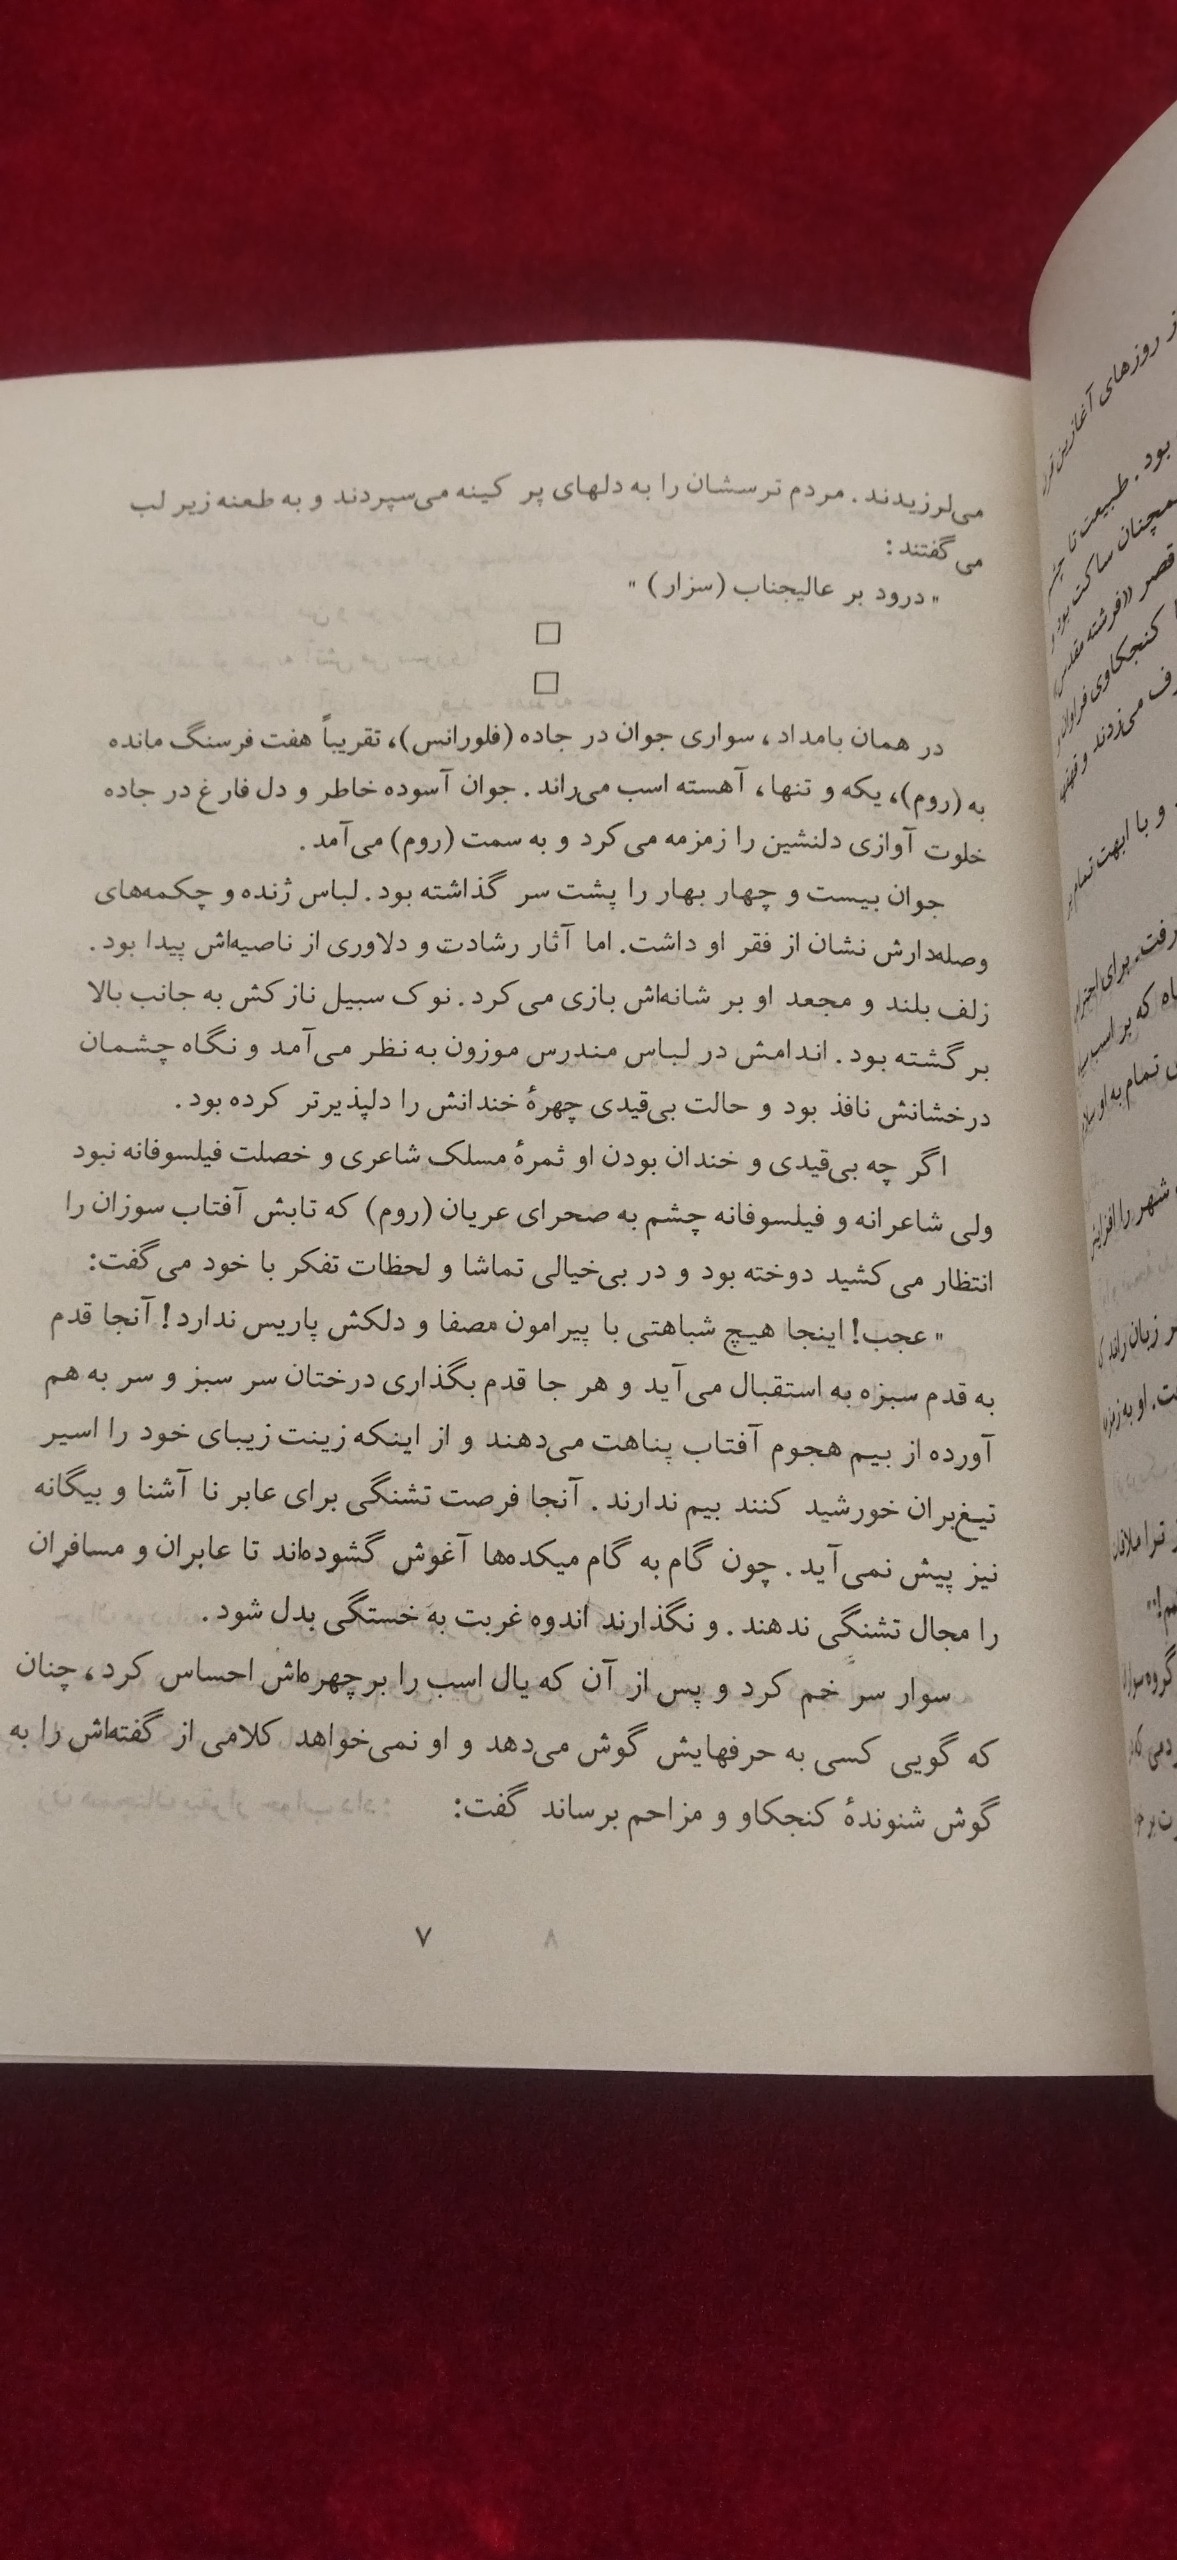 می‌لرزیدند. مردم ترسشان را به دلهای پر کینه می‌سپردند و به طعنه زیر لب
می‌گفتند:
"درود بر عالیجناب (سزار) "
□
□
در همان بامداد، سواری جوان در جاده (فلورانس)، تقریباً هفت فرسنگ مانده
به (روم)، یکه و تنها، آهسته اسب می‌راند. جوان آسوده خاطر و دل فارغ در جاده
خلوت آوازی دلنشین را زمزمه می‌کرد و به سمت (روم) می‌آمد.
جوان بیست و چهار بهار را پشت سر گذاشته بود. لباس ژنده و چکمه‌های
وصله‌دارش نشان از فقر او داشت. اما آثار رشادت و دلاوری از ناصیه‌اش پیدا بود.
زلف بلند و مجعد او بر شانه‌اش بازی می‌کرد. نوک سبیل نازکش به جانب بالا
برگشته بود. اندامش در لباس مندرس موزون به نظر می‌آمد و نگاه چشمان
درخشانش نافذ بود و حالت بی‌قیدی چهرهٔ خندانش را دلپذیرتر کرده بود.
اگر چه بی‌قیدی و خندان بودن او ثمرهٔ مسلک شاعری و خصلت فیلسوفانه نبود
ولی شاعرانه و فیلسوفانه چشم به صحرای عریان (روم) که تابش آفتاب سوزان را
انتظار می‌کشید دوخته بود و در بی‌خیالی تماشا و لحظات تفکر با خود می‌گفت:
"عجب! اینجا هیچ شباهتی با پیرامون مصفا و دلکش پاریس ندارد! آنجا قدم
به قدم سبزه به استقبال می‌آید و هر جا قدم بگذاری درختان سر سبز و سر به هم
آورده از بیم هجوم آفتاب پناهت می‌دهند و از اینکه زینت زیبای خود را اسیر
تیغ‌بران خورشید کنند بیم ندارند. آنجا فرصت تشنگی برای عابر نا آشنا و بیگانه
نیز پیش نمی‌آید. چون گام به گام میکده‌ها آغوش گشوده‌اند تا عابران و مسافران
را مجال تشنگی ندهند. و نگذارند اندوه غربت به خستگی بدل شود.
سوار سر خم کرد و پس از آن که یال اسب را بر چهره‌اش احساس کرد، چنان
که گویی کسی به حرفهایش گوش می‌دهد و او نمی‌خواهد کلامی از گفته‌اش را به
گوش شنوندهٔ کنجکاو و مزاحم برساند گفت:
۷